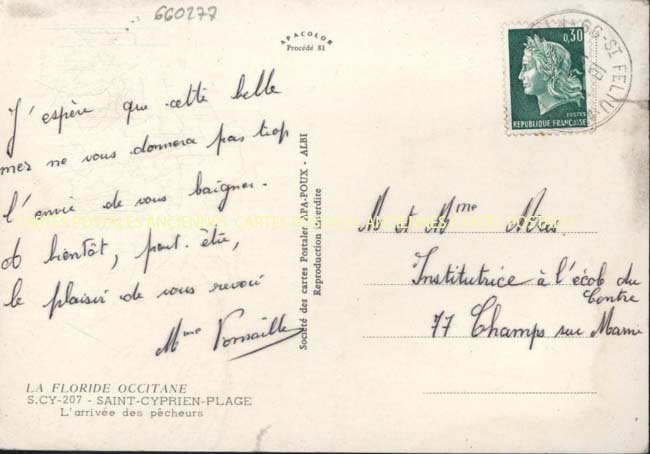 660277
APACOLOR
Procédé 81
0,30
POSTES
REPUBLIQUE FRANÇAISE
66-ST FELIU
J'espère que cette belle
mer ne vous donnera pas trop
l'envie de vous baigner.
A bientôt, peut-être,
le plaisir de vous revoir
Mme
Société des cartes Postales APA-POUX - ALBI
Reproduction interdite
M et Mme
Institutrice à l'école du
Centre
77 Champs sur Marne
CARTES POSTALES ANCIENNES CARTES POSTALES ANCIENNES CARTES POSTALES
LA FLORIDE OCCITANE
S.CY-207 - SAINT-CYPRIEN-PLAGE
L'arrivée des pêcheurs